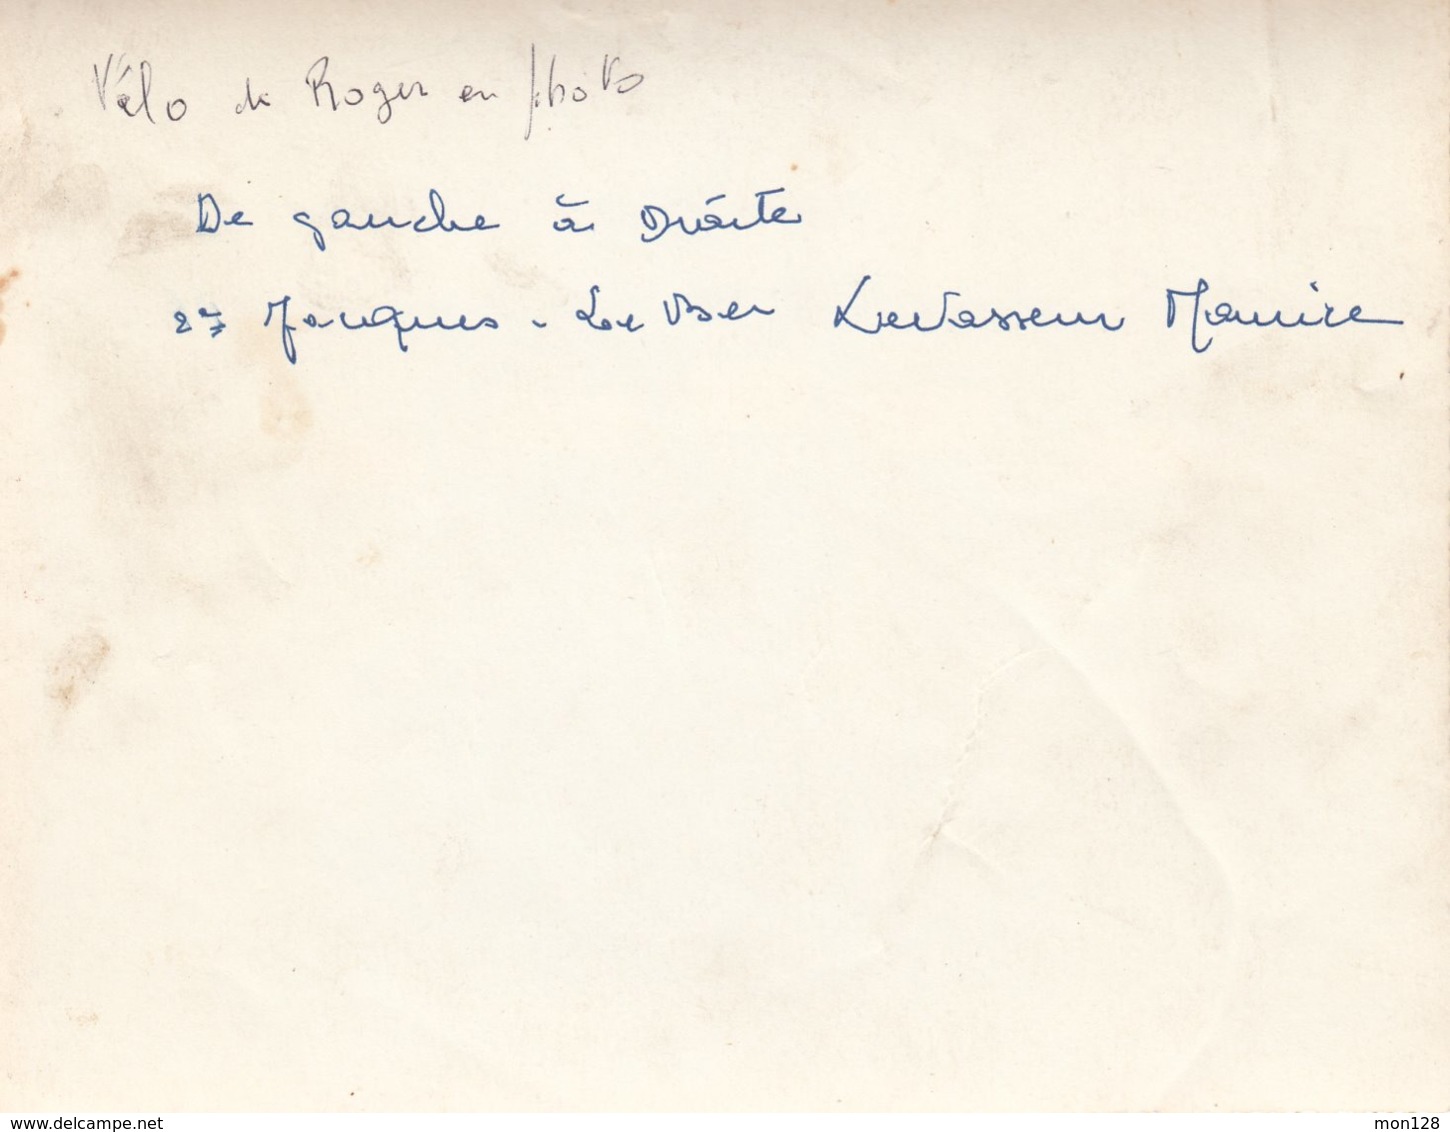 Vélo de Roger en photo
De gauche à Droite
Jacques - Le Ber Levasseur Maurice
www.delcampe.net
mon128